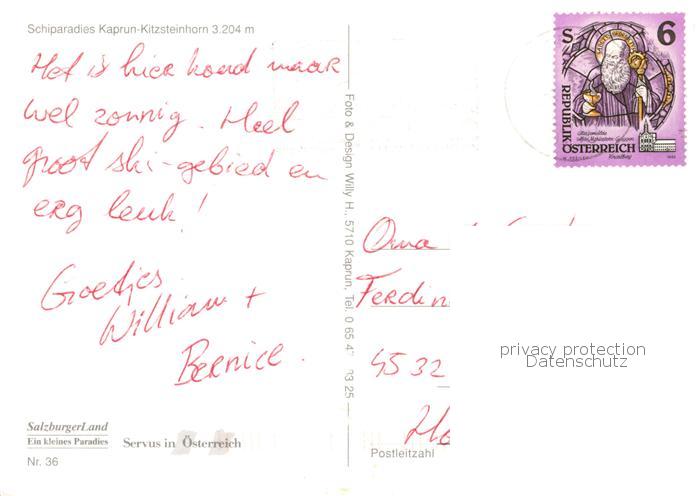 Schiparadies Kaprun-Kitzsteinhorn 3.204 m
Het is hier koud maar
wel zonnig. Heel
groot ski-gebied en
erg leuk!
Groetjes
William +
Bernice.
SalzburgerLand
Ein kleines Paradies
Servus in Österreich
Nr. 36
Foto & Design Willy H., 5710 Kaprun, Tel. 0 65 4
03 25
S 6
REPUBLIK
ÖSTERREICH
Oma
Ferdin
4532
Ho
Postleitzahl
privacy protection
Datenschutz